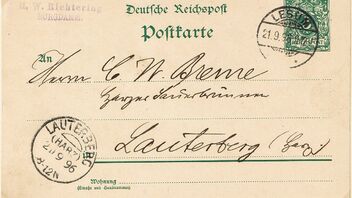 H. W. Richtering
BURGDAMM.
Deutsche Reichspost
Postkarte
LESUM
21.9.96
An
Herrn C W Breme
Lauterberg (Harz)
LAUTERBERG
(HARZ)
9 96
8-12N
Wohnung
(Straße und Hausnummer)